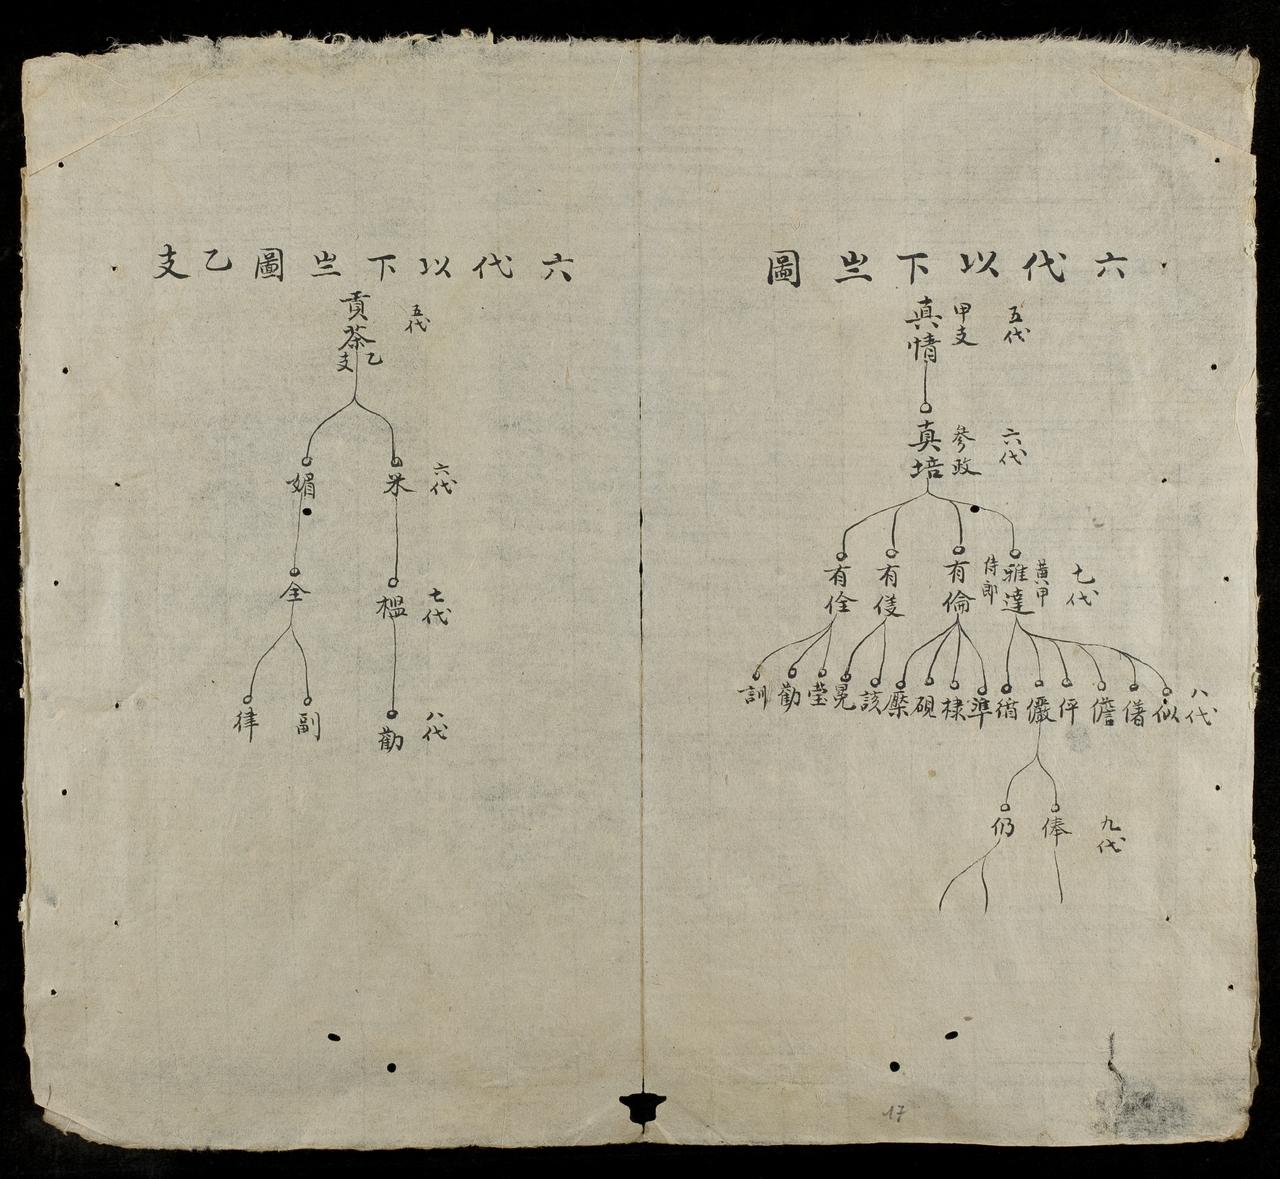 六代以下亗圖
五代
甲支
真情
六代
參政
真培
七代
黄甲
雅達
侍郎
有倫
有㑓
有佺
八代
似
僐
儋
伻
儼
循
準
棣
硯
該
晃
瑩
勸
訓
九代
俸
仍
六代以下亗圖乙支
五代
貢茶
乙支
六代
米
媚
七代
榲
全
八代
勸
副
律
17